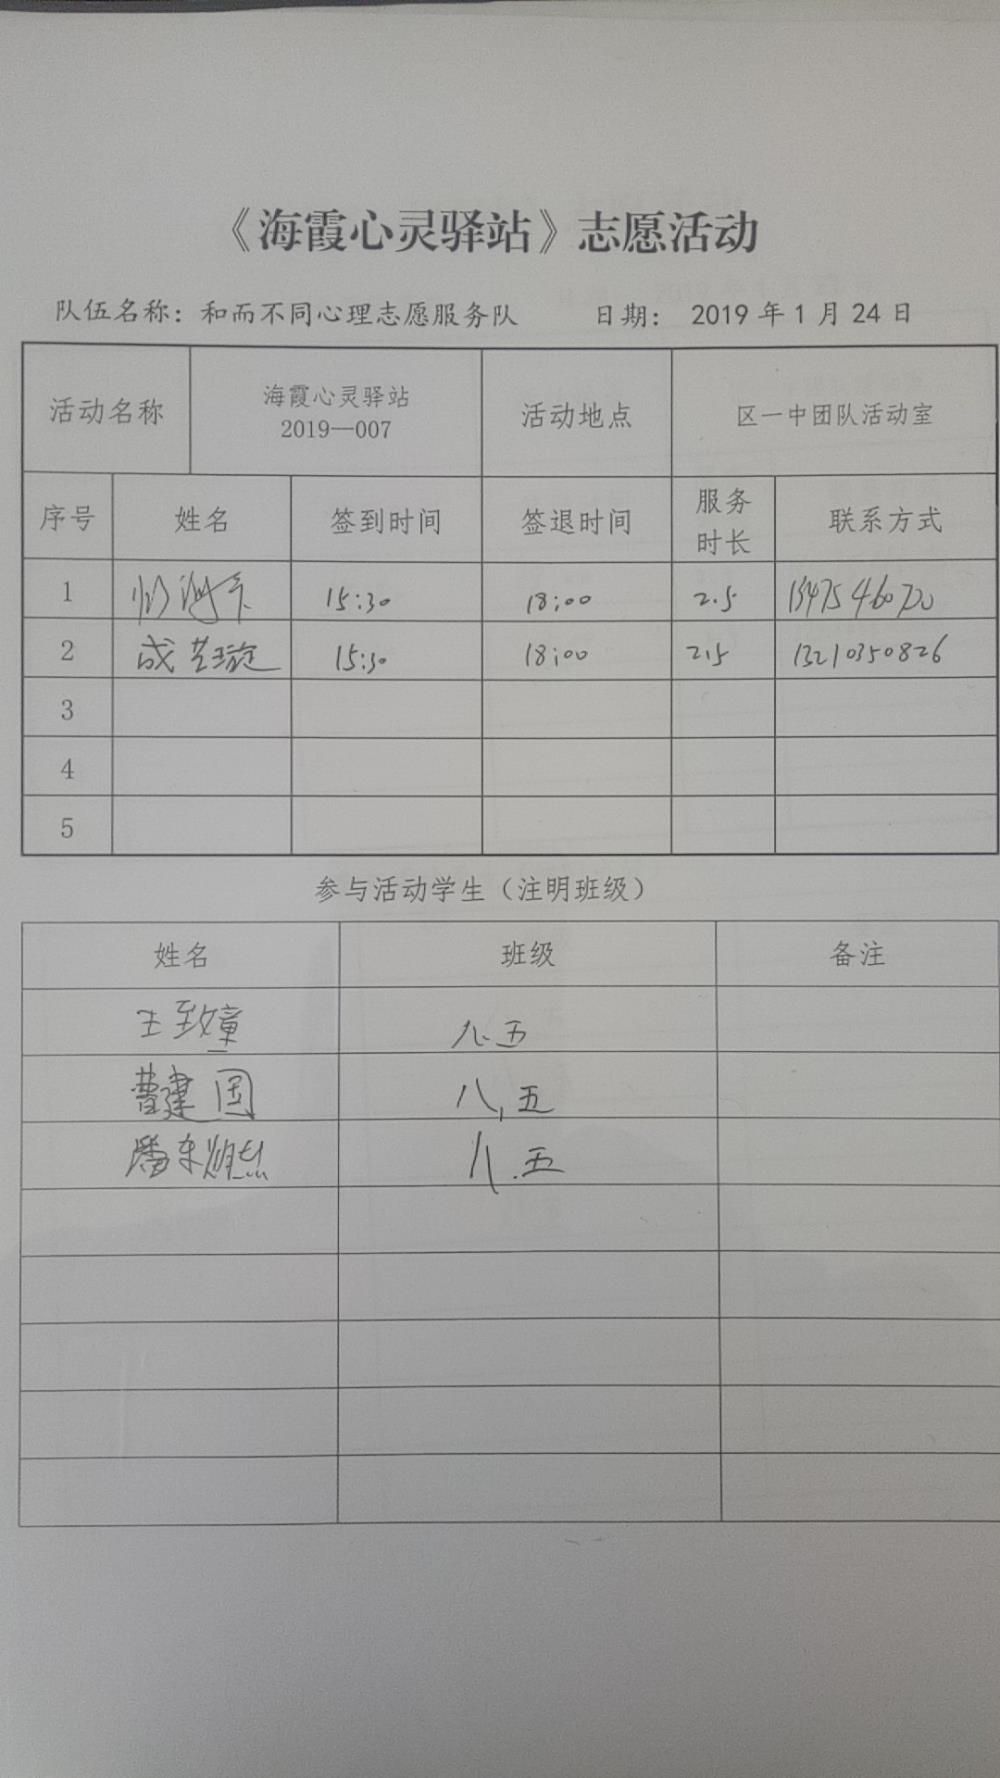 《海霞心灵驿站》志愿活动
队伍名称：和而不同心理志愿服务队 日期： 2019 年 1 月 24 日
活动名称 海霞心灵驿站 2019—007 活动地点 区一中团队活动室
序号 姓名 签到时间 签退时间 服务时长 联系方式
1 15:30 18:00 2.5
2 成艺璇 15:30 18:00 2.5 13210350826
3
4
5
参与活动学生（注明班级）
姓名 班级 备注
王致童 八.五
曹建国 八,五
八.五